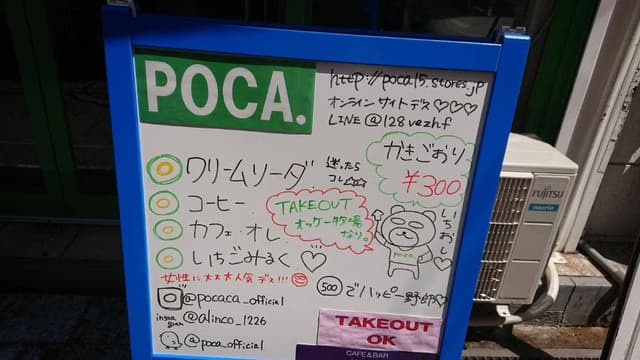 POCA.
http://poca15.stores.jp
オンラインサイトデス♡♡♡
LINE @128vezhf
かきごおり
¥300
クリームソーダ
迷ったら
コレ☆☆☆
コーヒー
カフェオレ
いちごみるく♡
女性に大大大人気デス!!!
TAKEOUT
オッケー牧場
なり。
いちおし
poca.
500 でハッピー野郎
@pocaca_official
insta gram @alinco_1226
@poca_official
TAKEOUT
OK
CAFE&BAR
FUJITSU